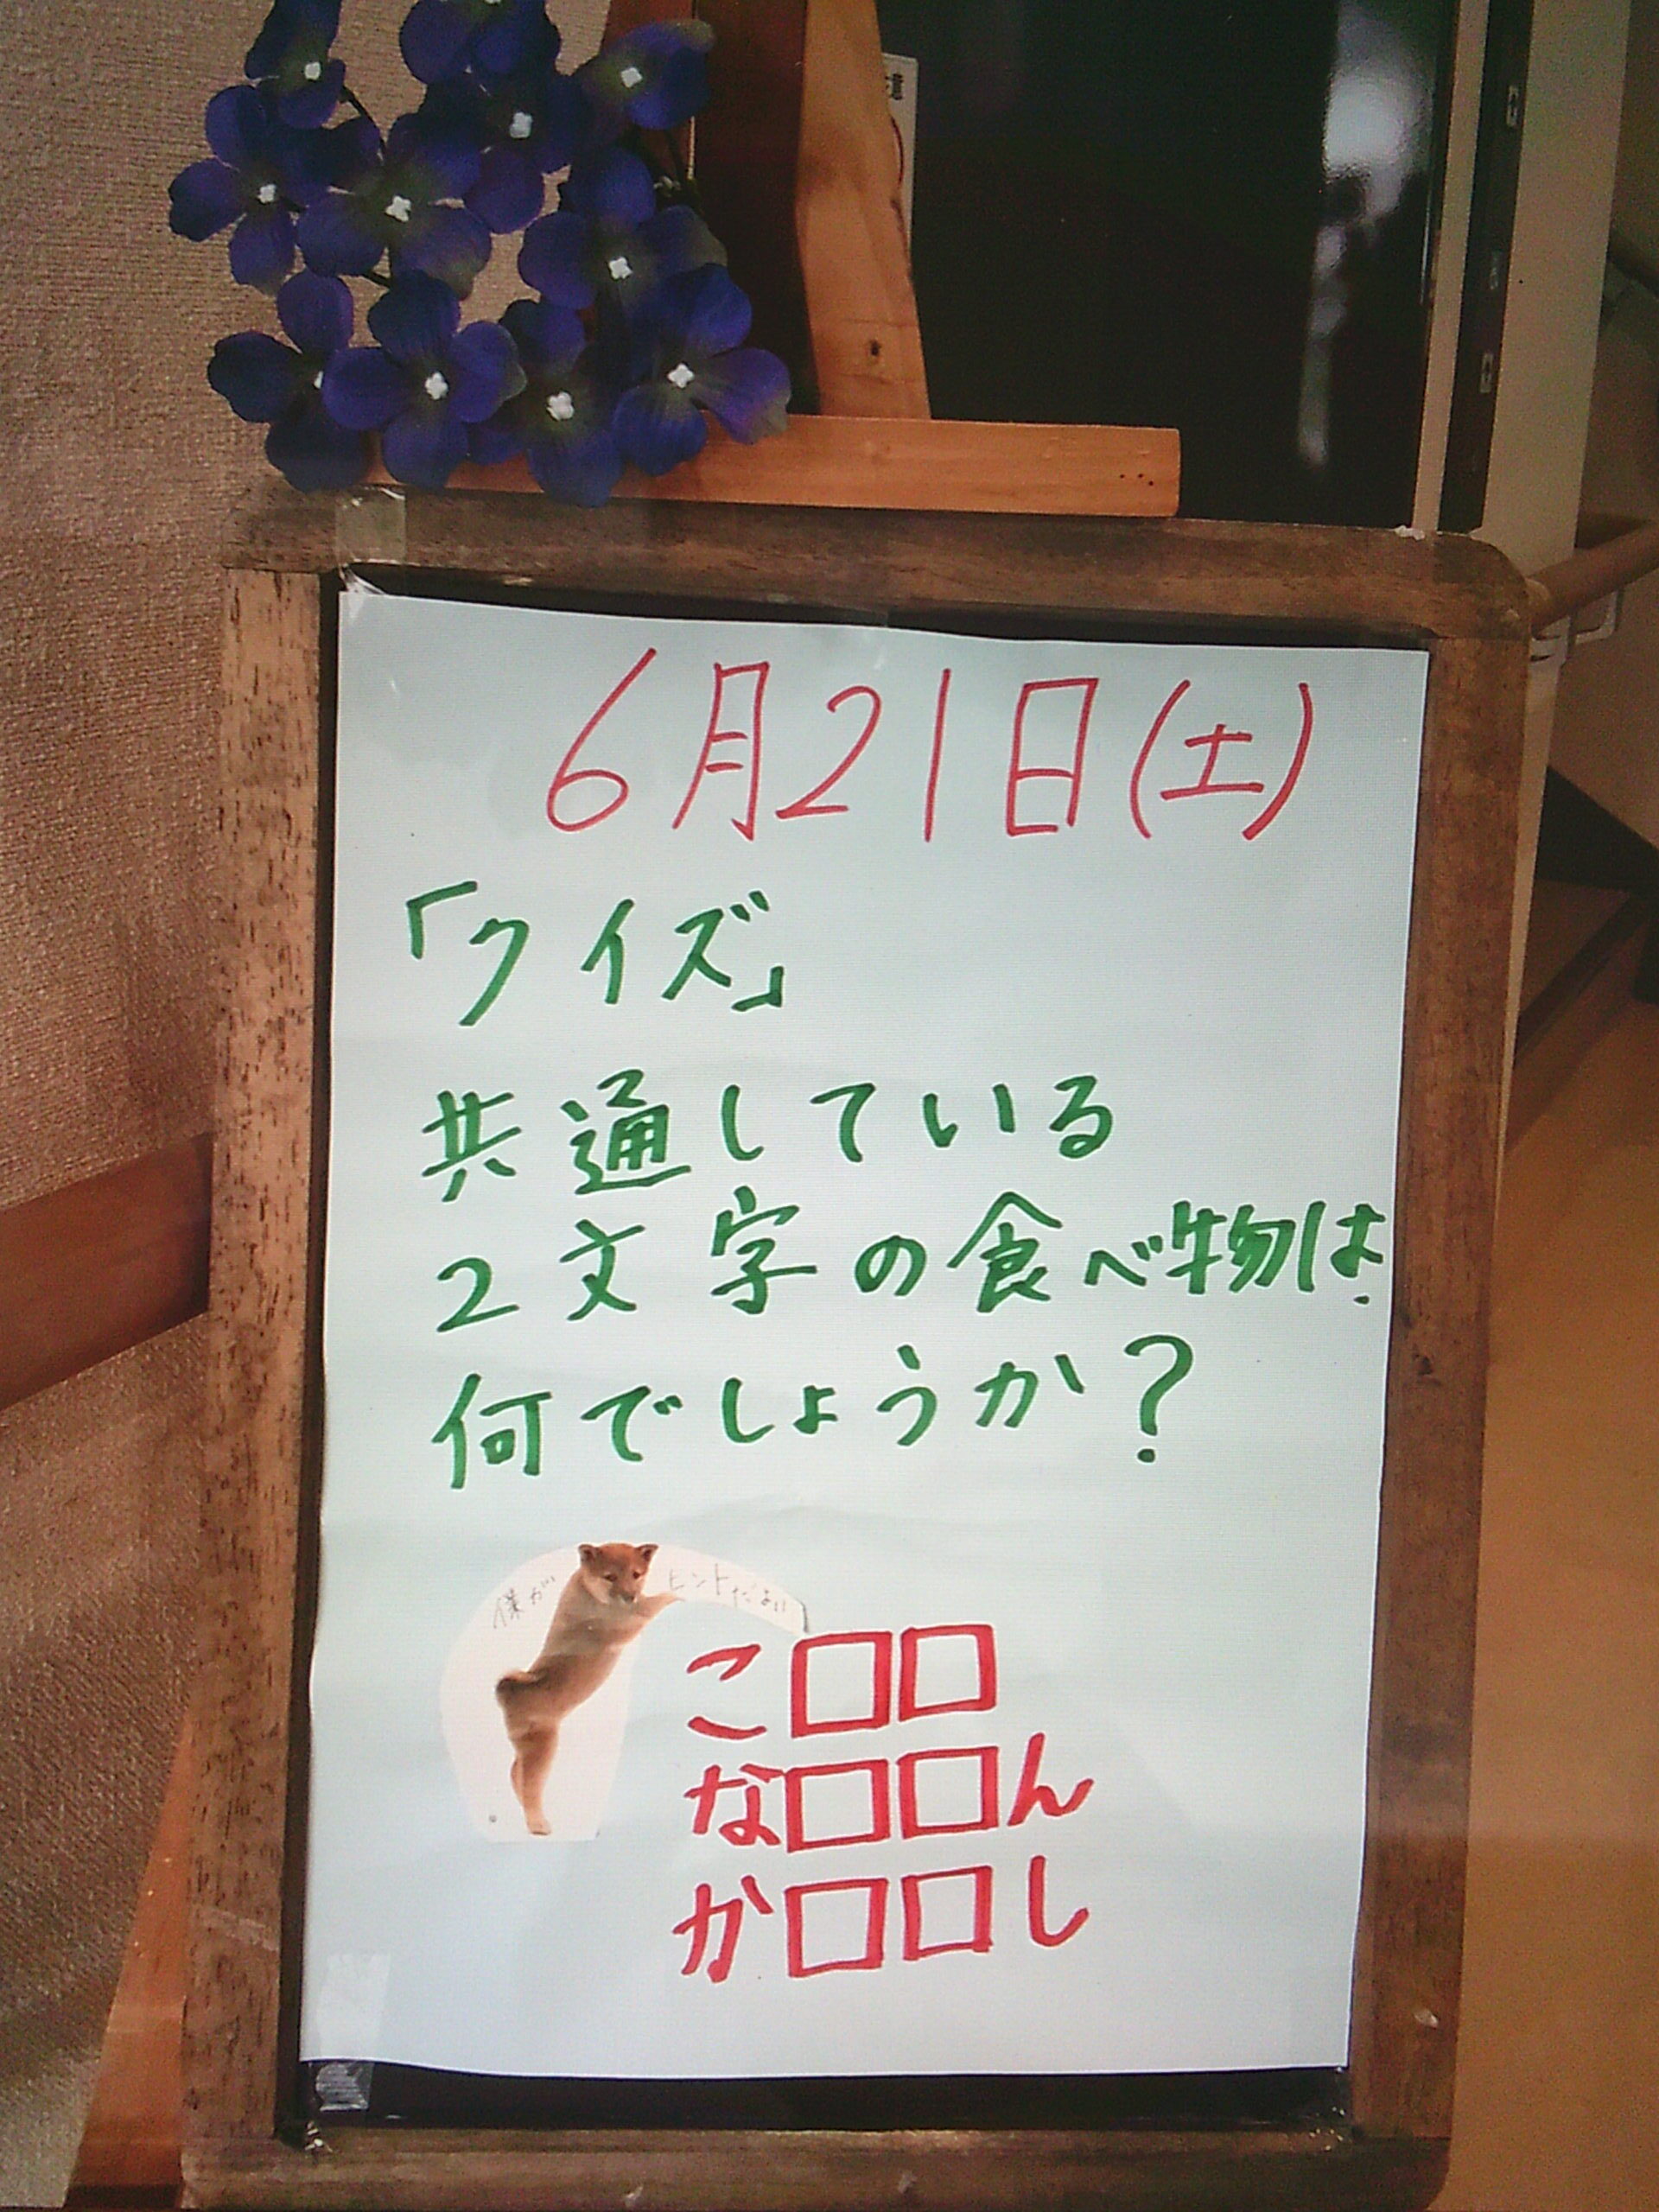 6月21日(土)
「クイズ」
共通している
2文字の食べ物は
何でしょうか?
僕が ヒントだよ!!
こ□□
な□□ん
か□□し